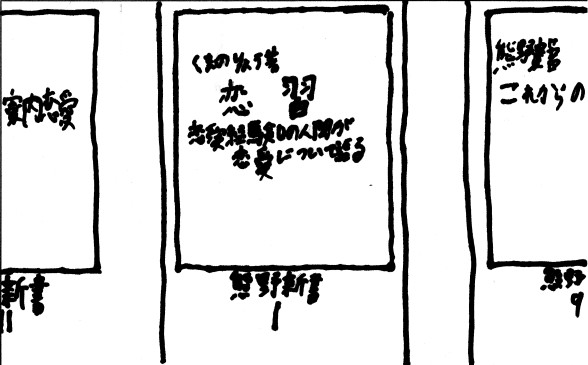 案内恋愛
新書
11
くまのりんご著
恋習
恋愛経験0の人間が
恋愛について語る
熊野新書
1
熊野
これからの
熊野
9